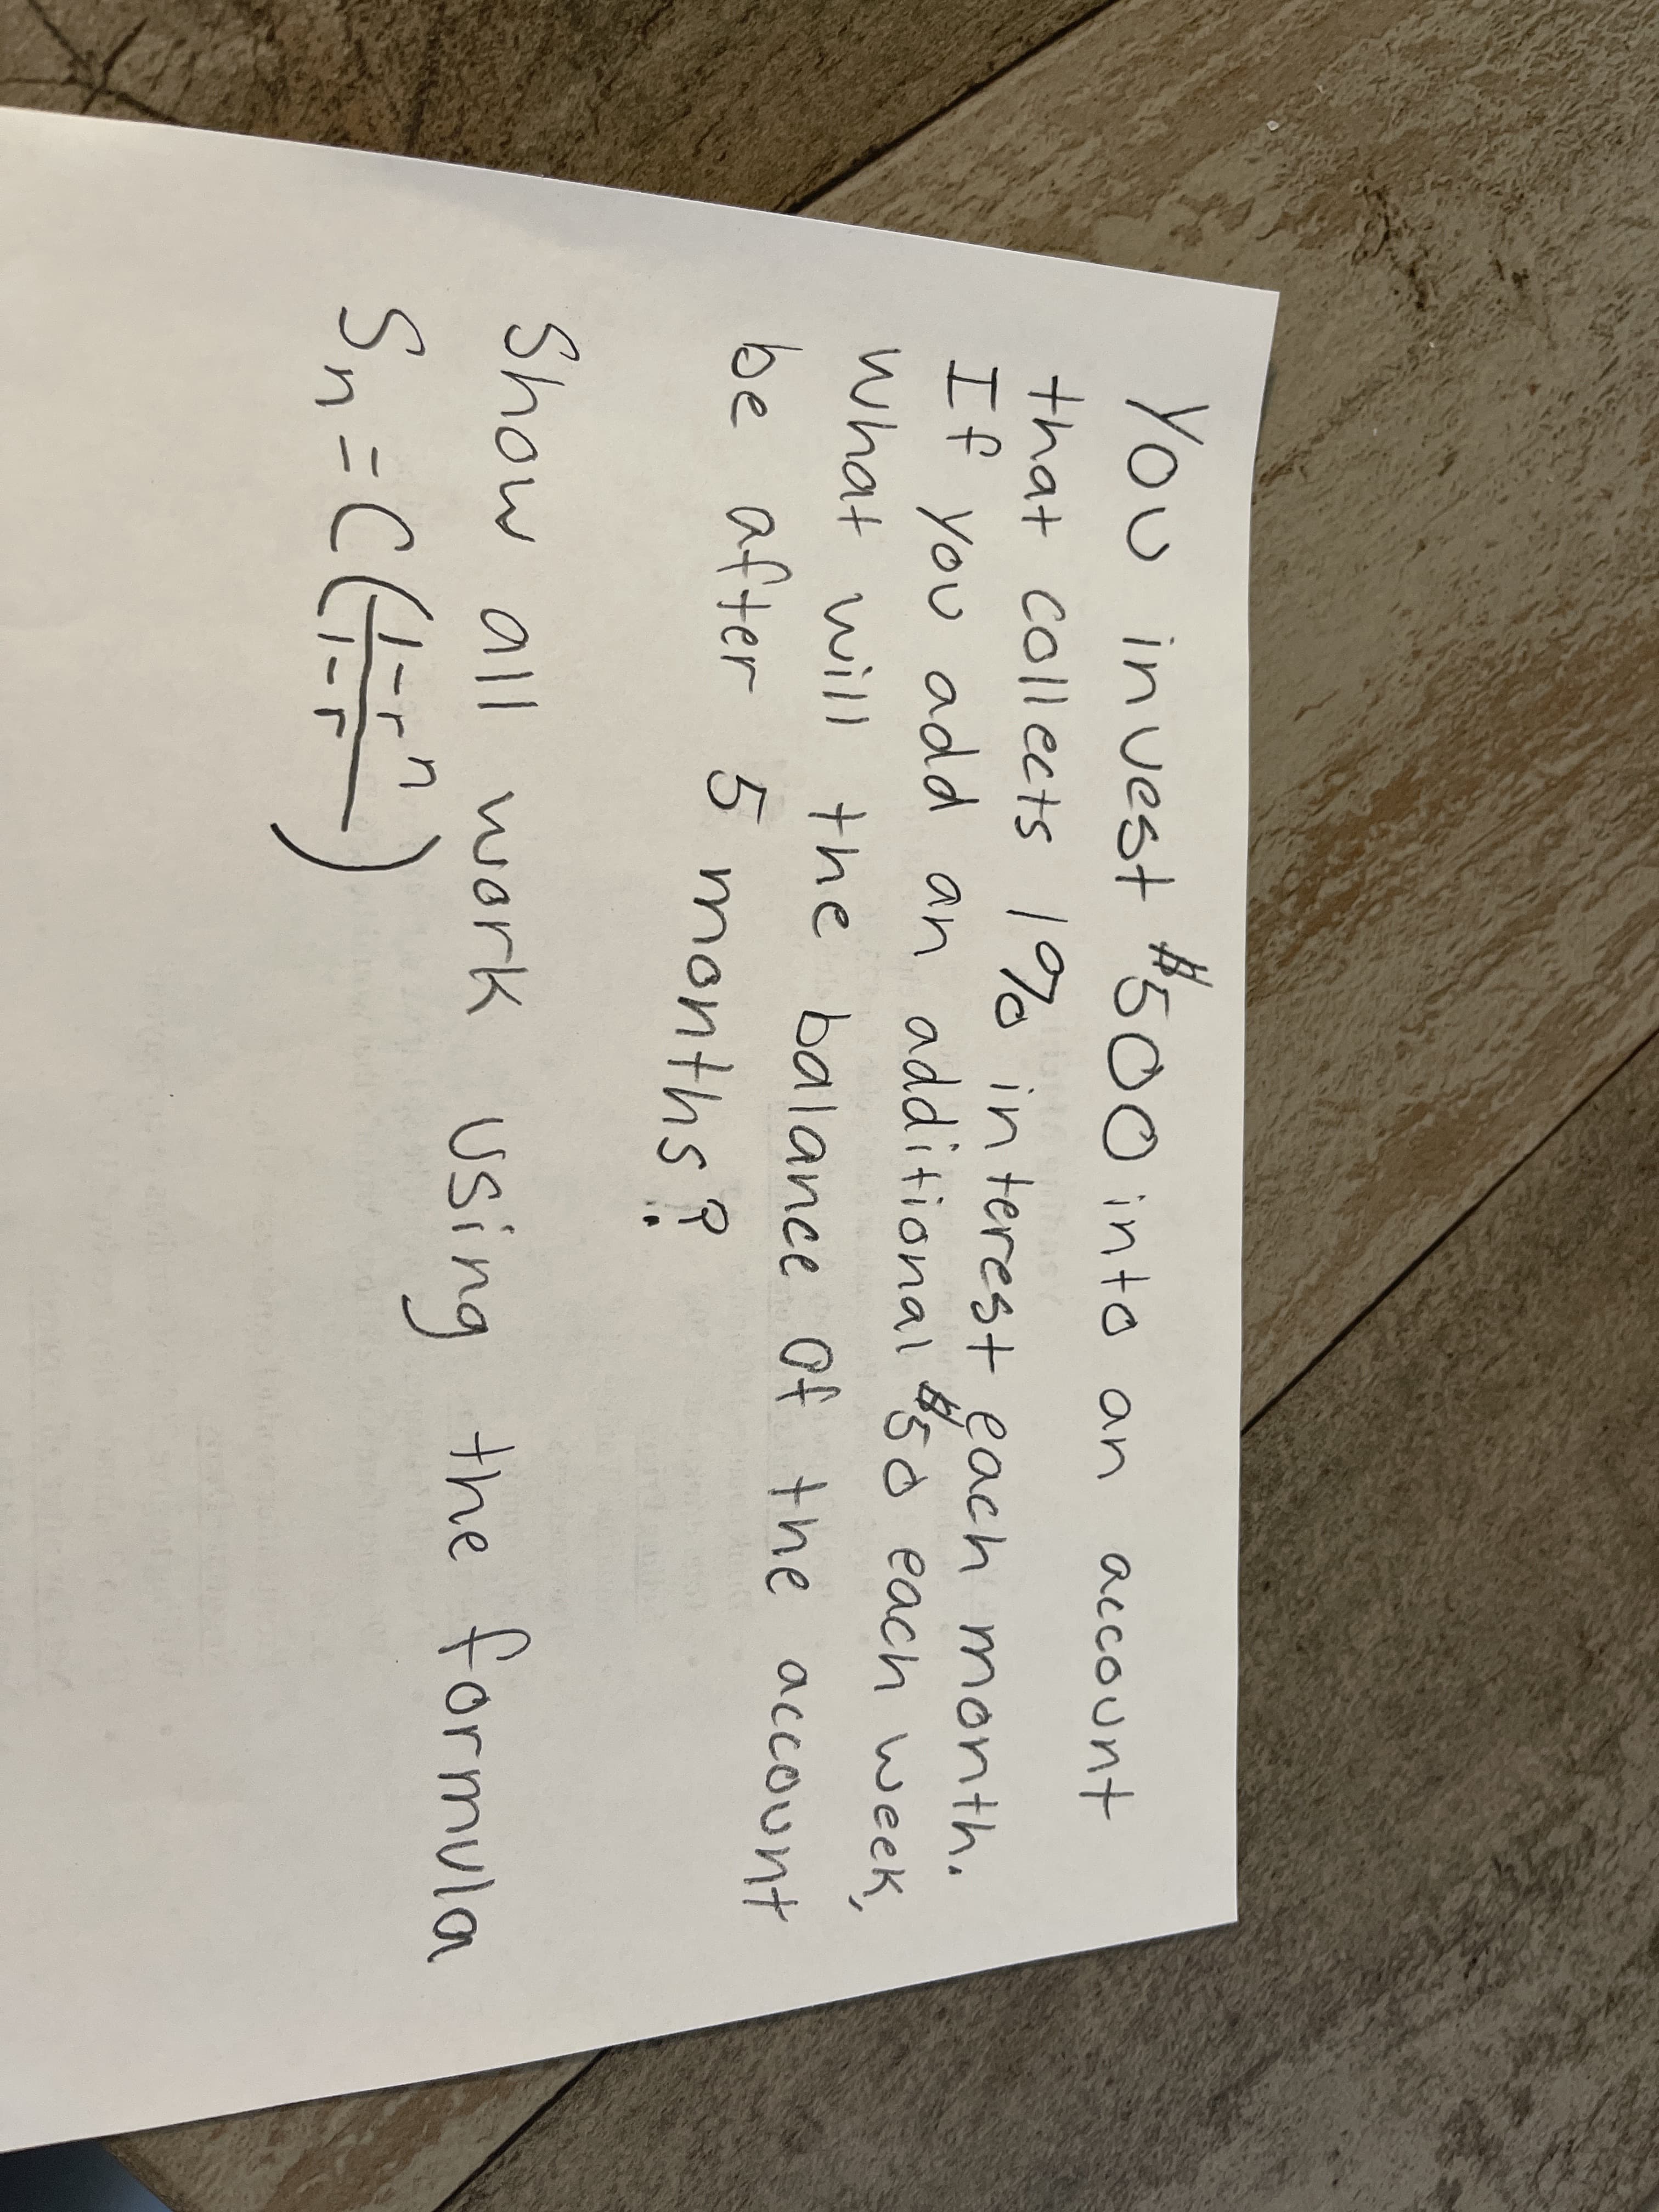 You invest $500 into an account
that collects 1% interest each month.
If you add an additional $50 each week,
what will the balance of the account
be after 5 months?
Show all work using the formula
Sn = C(1-r^n / 1-r)